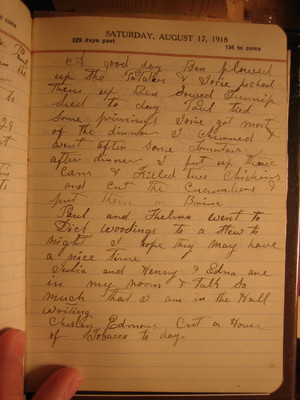 SATURDAY, AUGUST 17, 1918
229 days past
136 to come
A good day Ben plowed
up the Potatoes & Joice picked
them up Ben Sowed Turnip
Seed to day Paul tied
Some primings Joice got most
of the dinner I Churned &
went after Some Tomatoes
after dinner I put up three
Cans & Killed two Chickens
and cut the Cucumbers &
put them in Brine
Paul and Thelma went to
Dick Woodings to a Stew to
night I hope they may have
a nice time
Julia and Henry & Edna are
in my room & talk So
much that I am in the Hall
writing
Edmons Cut a House
of Tobacco to day